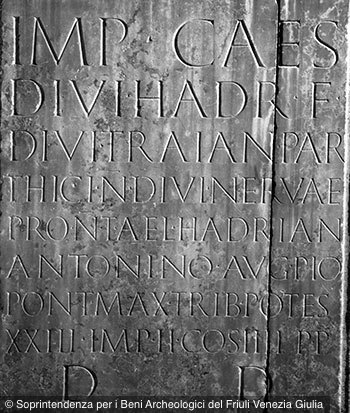 IMP CAES
DIVI·HADR·F
DIVI·TRAIAN·PAR
THICI·N·DIVI·NERVAE
PRON·T·AEL·HADRIAN
ANTONINO·AVG·PIO
PONT·MAX·TRIB·POTES
XXIII·IMP·II·COS·IIII·P·P
D D
© Soprintendenza per i Beni Archeologici del Friuli Venezia Giulia